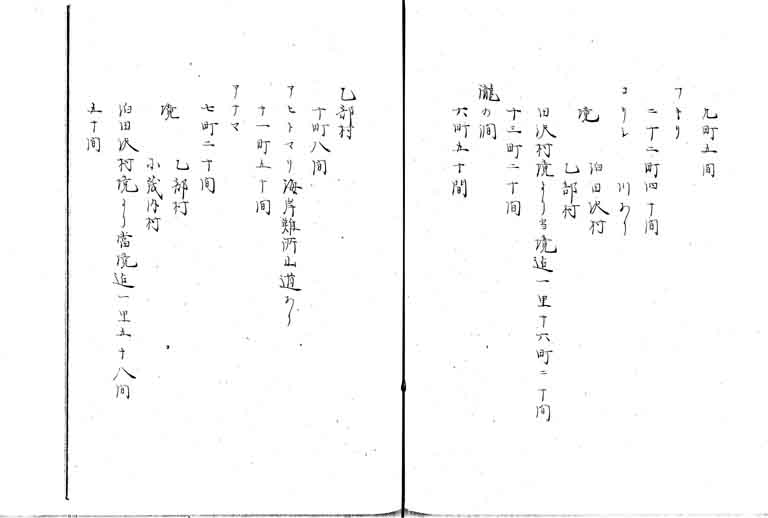 九町五間
フトリ
二十二町四十間
コリレ　川あり
境　泊田沢村
乙部村
田沢村境より当境迠一里十六町二十間
十三町二十間
瀧の澗
六町五十間
乙部村
十町八間
アヒトマリ海岸難所山道あり
十一町五十間
アナマ
七町二十間
境　乙部村
小茂内村
泊田沢村境より當境迠一里五十八間
五十間